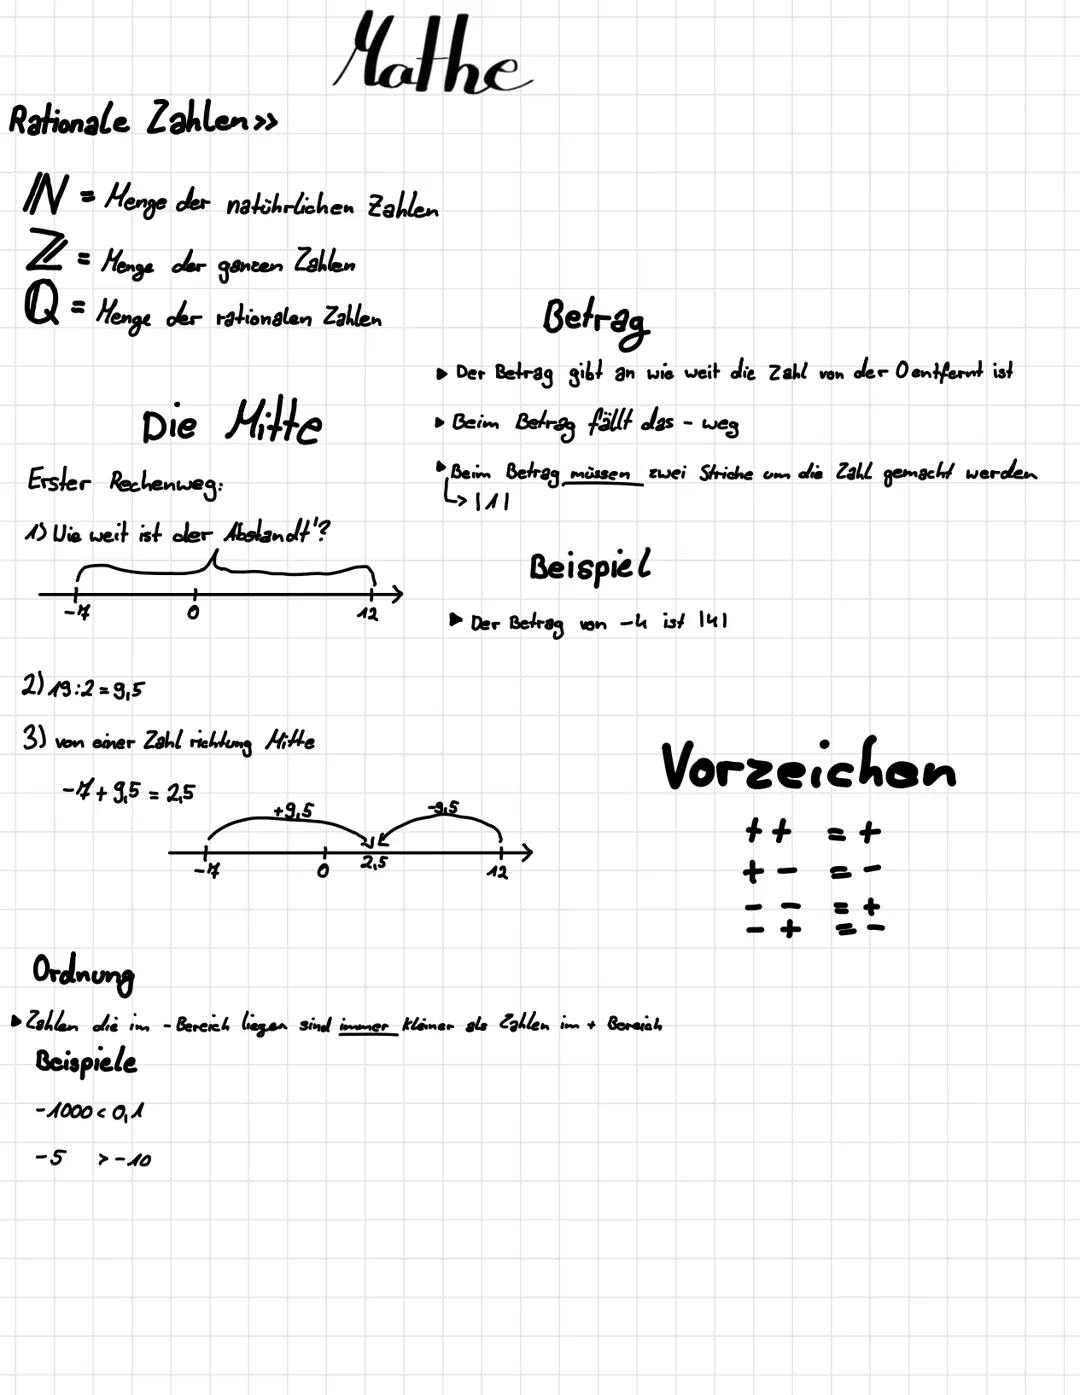 Mathe
Rationale Zahlen >>
ℕ = Menge der natührlichen Zahlen
ℤ = Menge der ganzen Zahlen
ℚ = Menge der rationalen Zahlen
Betrag
▸ Der Betrag gibt an wie weit die Zahl von der 0 entfernt ist
▸ Beim Betrag fällt das - weg
▸ Beim Betrag müssen zwei Striche um die Zahl gemacht werden
↳ |1|
Beispiel
▸ Der Betrag von -4 ist |4|
Die Mitte
Erster Rechenweg:
1) Wie weit ist der Abstandt'?
-7 0 12
2) 19:2 = 9,5
3) von einer Zahl richtung Mitte
-7 + 9,5 = 2,5
+9,5 -9,5
-7 0 2,5 12
Vorzeichen
+ + = +
+ - = -
- - = +
- + = -
Ordnung
▸ Zahlen die im - Bereich liegen sind immer kleiner als Zahlen im + Bereich
Beispiele
-1000 < 0,1
-5 > -10